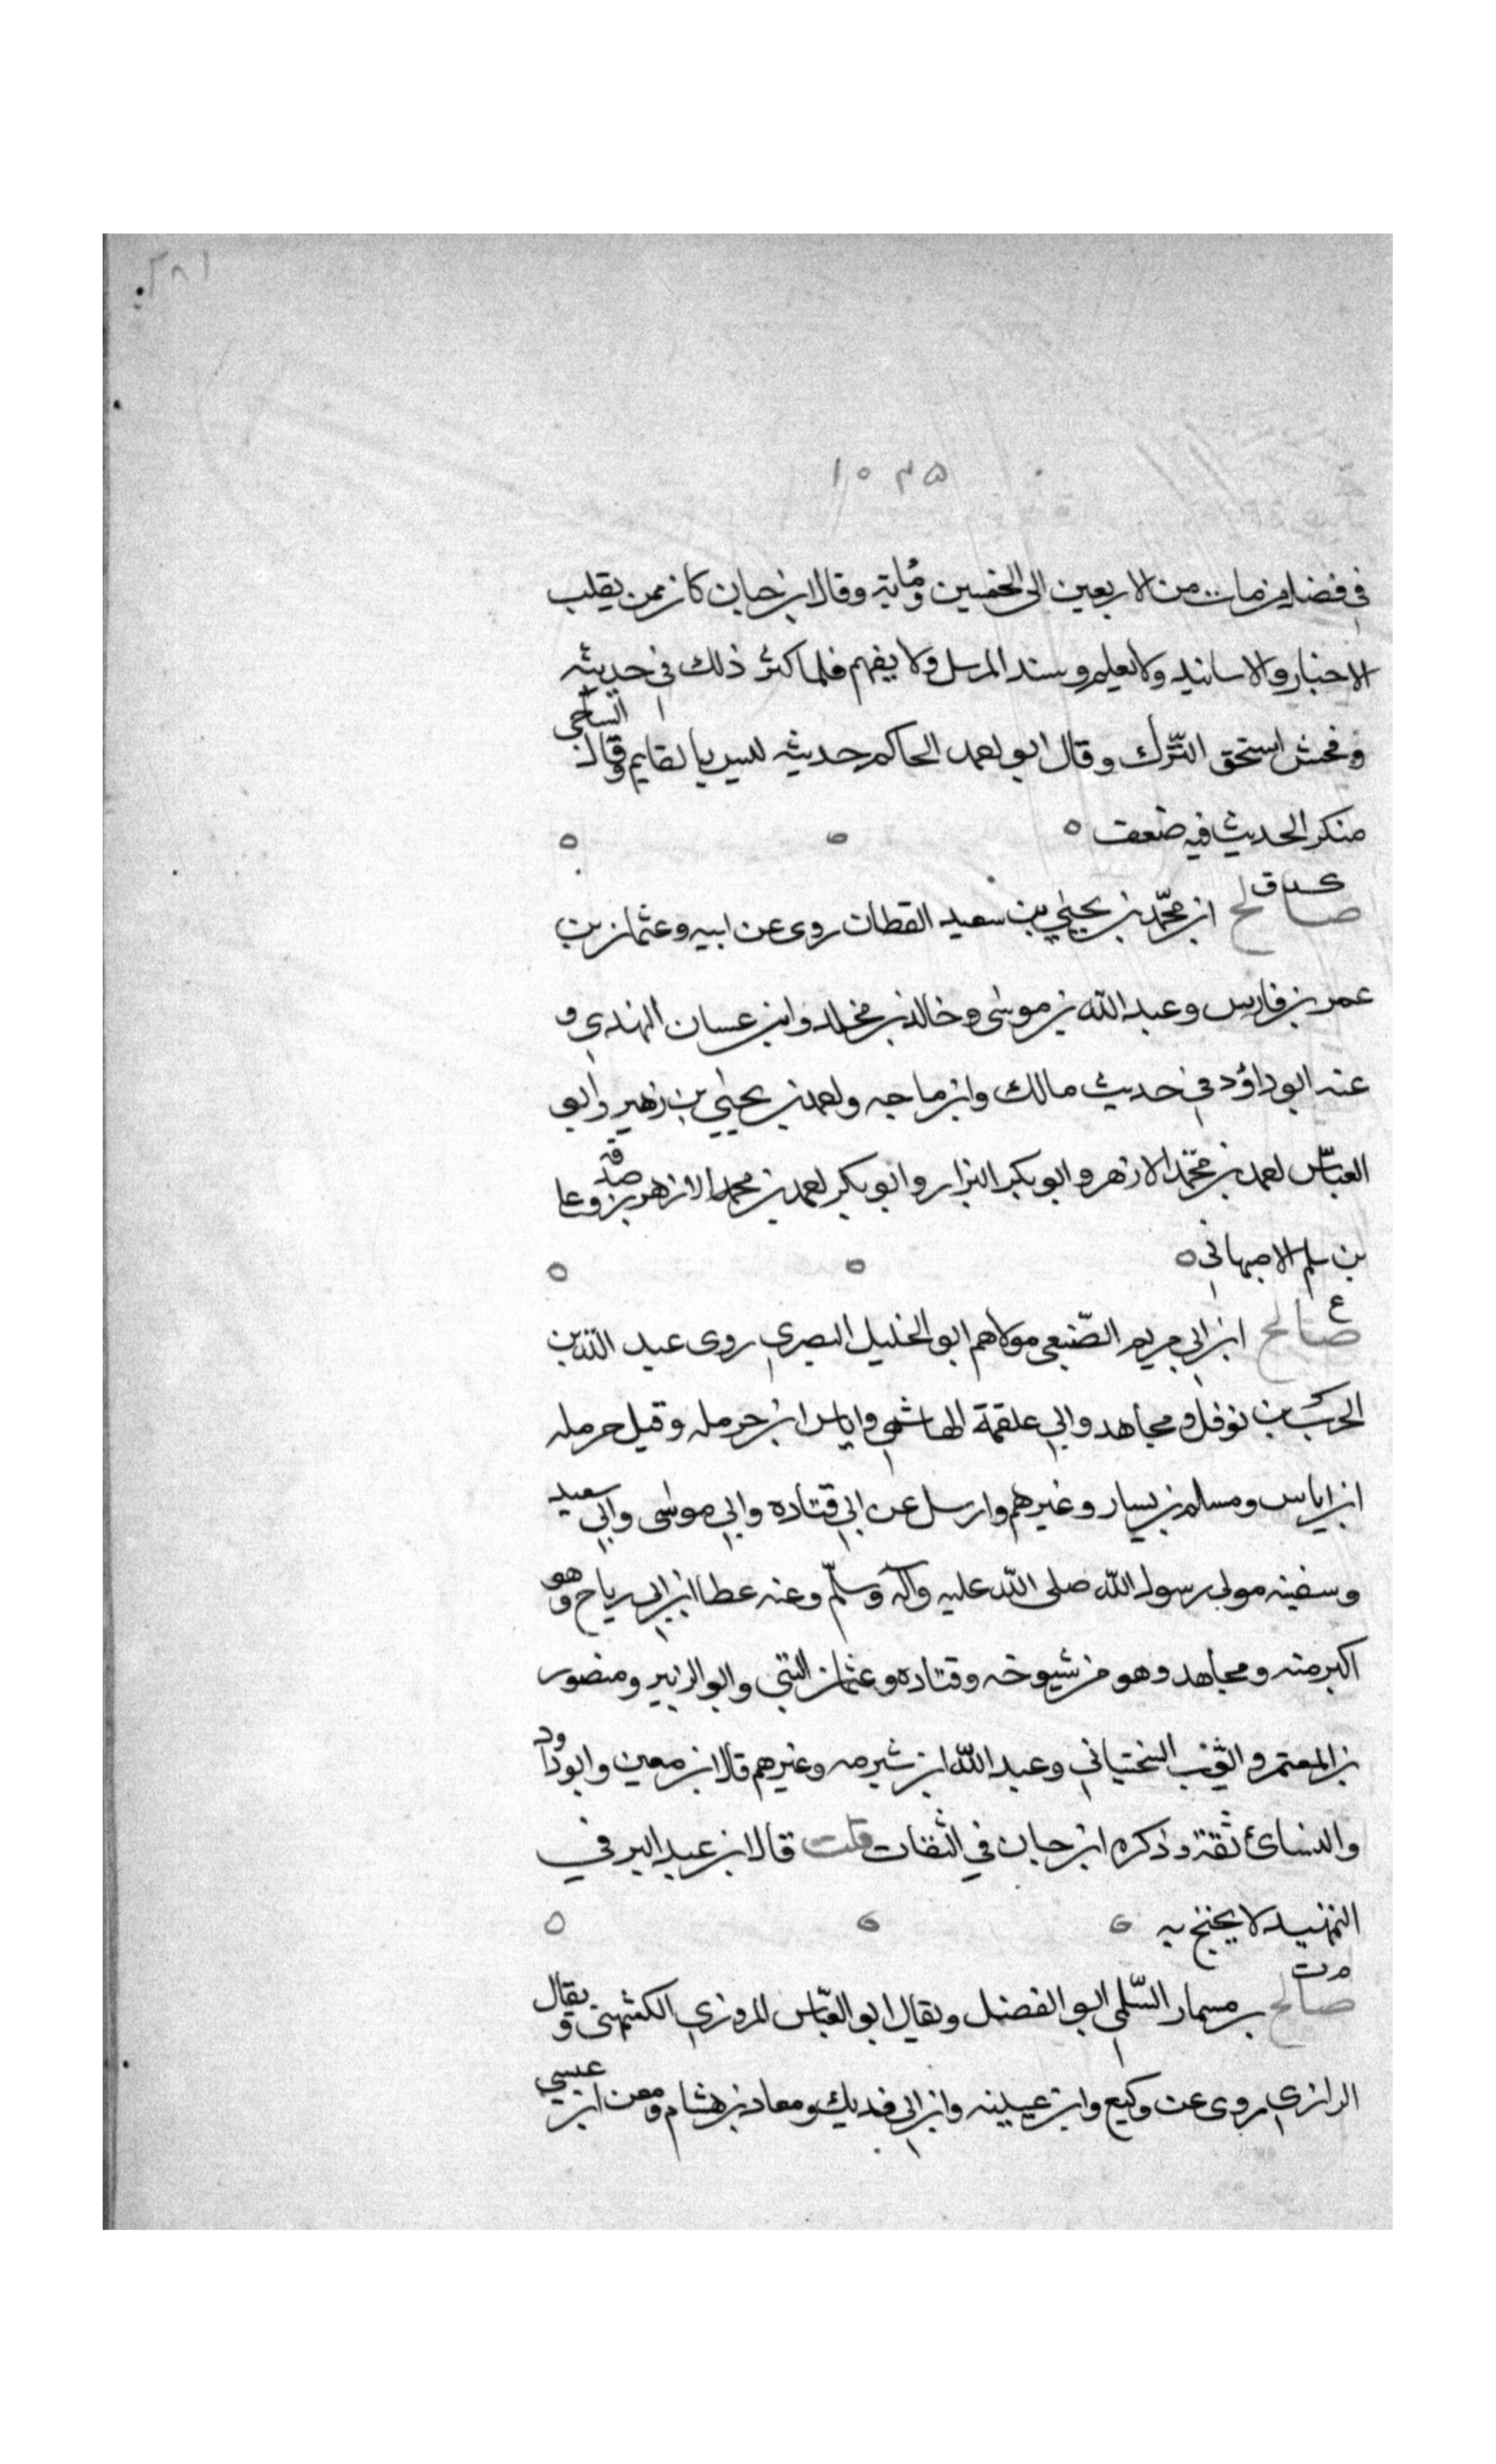 ٢٨١
١٠٣٥
في فضل من مات من الاربعين الى الخمسين ومايه وقال ابن حبان كان ممن يقلب
الاخبار والاسانيد ولا يعلم ويسند المرسل ولا يفهم فلما كثر ذلك في حديثه
وفحش استحق الترك وقال ابو احمد الحاكم حديثه ليس بالقايم وقال الساجي
منكر الحديث فيه ضعف ه
كد ق
صالح ابن محمد بن يحيى بن سعيد القطان روى عن ابيه وعثمان بن
عمر بن فارس وعبد الله بن موسى وخالد بن مخلد وابن عسان الهندي و
عنه ابو داؤد في حديث مالك وابن ماجه واحمد بن يحيى بن زهير وابو
العباس احمد بن محمد الازهر وابو بكر البزار وابو بكر احمد بن محمد الازهر بن صدقه وعلي
بن سلم الاصبهاني ه
ع
صالح ابن ابي مريم الضبعي مولاهم ابو الخليل البصري روى عبد الله بن
الحرث بن نوفل ومجاهد وابي علقمة الهاشمي واياس ابن حرمله وقيل حرمله
ابن اياس ومسلم بن يسار وغيرهم وارسل عن ابي قتاده وابي موسى وابي سعيد
وسفينه مولى رسول الله صلى الله عليه وآله وسلم وعنه عطا ابن ابي رياح وهو
اكبر منه ومجاهد وهو من شيوخه وقتاده وعثمان البتي وابو الزبير ومنصور
بن المعتمر وايوب السختياني وعبد الله ابن شبرمه وغيرهم قال ابن معين وابو داود
والنسائ ثقة وذكره ابن حبان في الثقات قلت قال ابن عبد البر في
التمهيد لا يحتج به
م ت
صالح بن مسمار السلمي ابو الفضل ويقال ابو العباس المروزي الكشميهني ويقال
الرازي روى عن وكيع وابن عيينه وابن ابي فديك ومعاذ بن هشام ومعن ابن عيسى